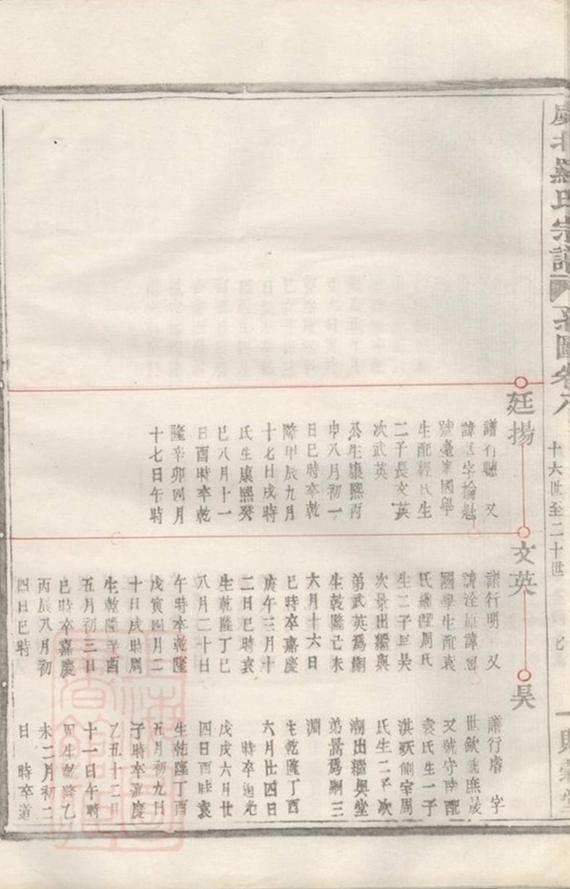 羅氏宗譜
系圖卷八
十六世至二十世
廷揚
譜行聰 又
國學
生配經氏生
二子長文英
次武英
公生康熙丙
申八月初一
日巳時卒乾
隆甲辰九月
十七日戌時
氏生康熙癸
巳八月十一
日酉時卒乾
隆辛卯四月
十七日午時
文英
譜行明 又
國學生配袁
氏繼配周氏
生二子長昊
次景出繼與
弟武英爲嗣
生乾隆己未
六月十六日
巳時卒嘉慶
庚午三月十
二日巳時袁
生乾隆丁巳
八月二十日
午時卒乾隆
戊寅四月二
十日戌時周
生乾隆辛酉
五月初三日
巳時卒嘉慶
丙辰八月初
四日巳時
昊
譜行睿 字
又號守南配
袁氏生一子
淇妖側室周
氏生二子次
潮出繼與堂
弟暠爲嗣三
澗
生乾隆丁酉
六月廿四日
時卒道光
戊戌六月廿
四日酉時袁
生乾隆丁酉
五月初九日
子時卒嘉慶
乙丑十二月
十一日午時
周生乾隆乙
未二月初二
日 時卒道